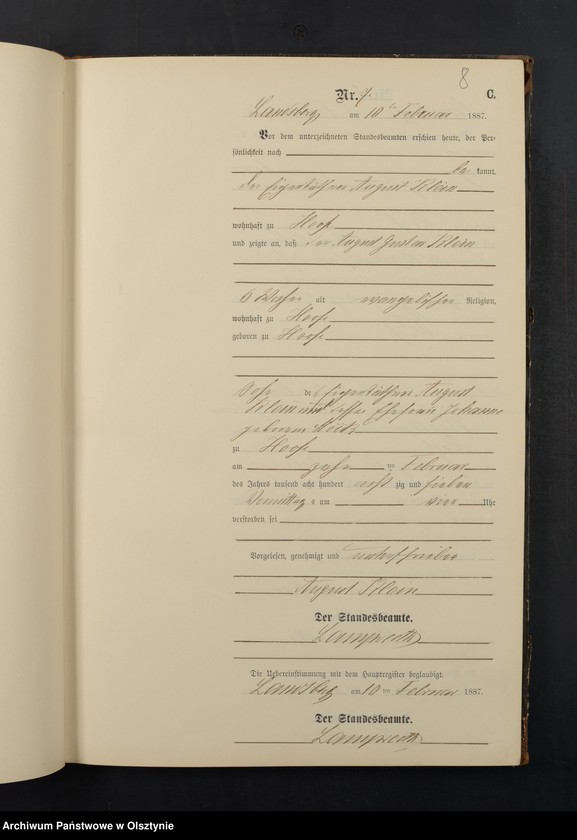 8
Nr. 9. C.
Landsberg am 10ten Februar 1887.
Vor dem unterzeichneten Standesbeamten erschien heute, der Per-
sönlichkeit nach
be kannt,
der Eigenkäthner August Klein
wohnhaft zu Hoofe
und zeigte an, daß der August Gustav Klein
6 Wochen alt evangelischer Religion,
wohnhaft zu Hoofe
geboren zu Hoofe
Sohn des Eigenkäthner August
Klein und dessen Ehefrau Johanne
geborene
zu Hoofe
am zehn ten Februar
des Jahres tausend acht hundert acht zig und sieben
Vormittags um vier Uhr
verstorben sei
Vorgelesen, genehmigt und unterschrieben
August Klein
Der Standesbeamte.
Lamprecht
Die Uebereinstimmung mit dem Hauptregister beglaubigt.
Landsberg am 10 ten Februar 1887.
Der Standesbeamte.
Lamprecht
Archiwum Państwowe w Olsztynie